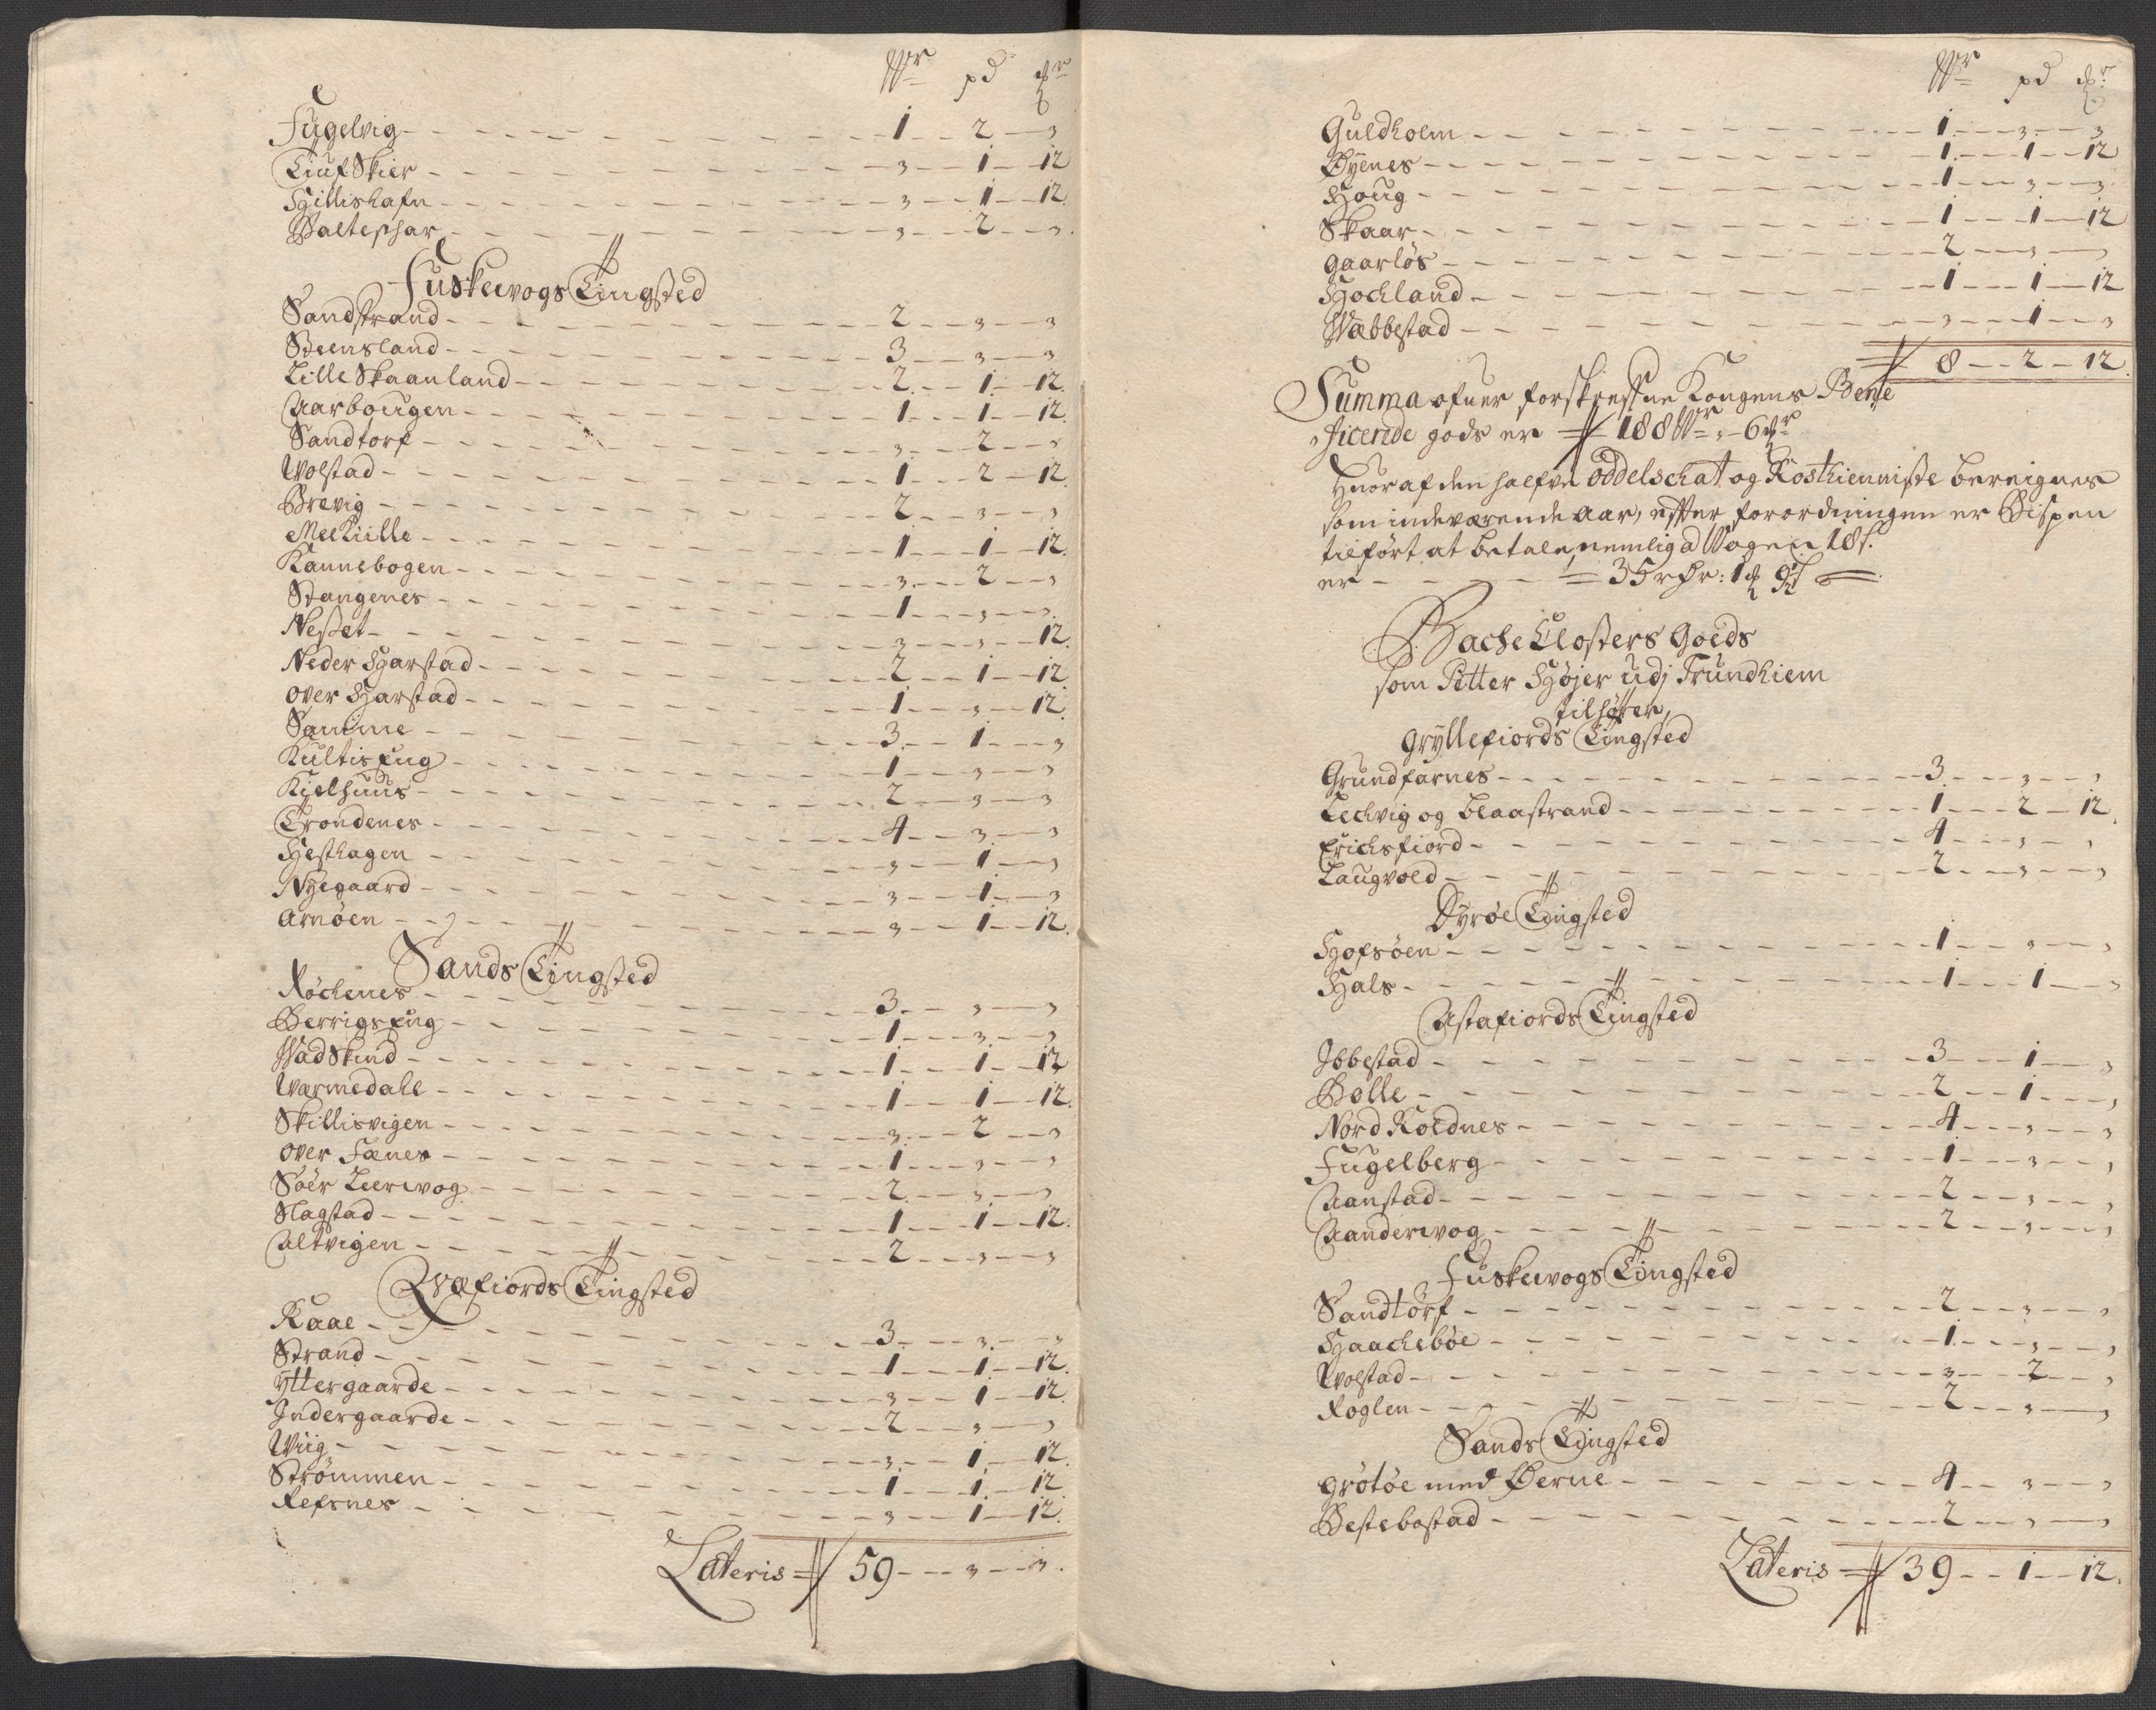 Wr pd ℔r
Fugelvig - 1 - 2 - „
Tiuf Skier - „ - 1 - 12
Hillishafn - „ - 1 - 12.
Balteshar - „ - 2 - „
Fuskevogs Tingsted
Sandstrand - 2 - „ - „
Steensland - 3 - „ - „
Lille Skaanland - 2 - 1 - 12.
Aarbougen - 1 - 1 - 12.
Sandtorf - „ - 2 - „
Wolstad - 1 - 2 - 12.
Brevig - 2 - „ - „
Melkiille - 1 - 1 - 12.
Kannebogen - „ - 2 - „
Stangenes - 1 - „ - „
Nesset - „ - „ - 12.
Neder Harstad - 2 - 1 - 12
over Harstad - 1 - „ - 12.
Samme - 3 - 1 - „
Kultis Eng - 1 - „ - „
Kielhuus - 2 - „ - „
Trondenes - 4 - „ - „
Hesthagen - „ - 1 - „
Nyegaard - „ - 1 - „
Arnöen - „ - 1 - 12.
Sands Tingsted
Röchenes - 3 - „ - „
Berrigs Eng - 1 - „ - „
Wadskind - 1 - 1 - 12
Warmedahl - 1 - 1 - 12.
Skillisvigen - „ - 2 - „
over Fænes - 1 - „ - „
Söer Leervog - 2 - „ - „
Slagstad - 1 - 1 - 12.
Altvigen - 2 - „ - „
Qvæfiords Tingsted
Raae - 3 - „ - „
Strand - 1 - 1 - 12.
Yttergaarde - „ - 1 - 12.
Indergaarde - 2 - „ - „
Wiig - „ - 1 - 12.
Strömmen - 1 - 1 - 12
Refsnes - „ - 1 - 12.
Lateris 59 - „ - „
Wr pd ℔r
Guldholm - 1 - „ - „
Øyenes - 1 - 1 - 12
Houg - 1 - „ - „
Skaar - 1 - 1 - 12
Gaarlös - 2 - „ - „
Hochland - 1 - 1 - 12
Wæbbestad - „ - 1 - „
8 - 2 - 12.
Summa ofuer forskrefne Kongens Bene
ficerede gods er 188 Wr „ - 6 ℔r
Huoraf den halfve Oddelschat og Rosthienniste bereignes
som indeværende Aar, effter forordningen er Bispen
tilfört at betale, nemlig a Wogen 18 s.
er - 35 rdr: 1 ℔ 9 s
Bache Closters Goeds
som Petter Höjer udj Trundhiem
tilhörer,
Gryllefiords Tingsted
Grundfarnes - 3 - „ - „
Lechvig og Blaastrand - 1 - 2 - 12.
Erichsfiord - 4 - „ - „
Laugvold - 2 - „ - „
Dyröe Tingsted
Hofsöen - 1 - „ - „
Hals - 1 - 1 - „
Astafiords Tingsted
Ibbestad - 3 - 1 - „
Bolle - 2 - 1 - „
Nord Roldnes - 4 - „ - „
Fugelberg - 1 - „ - „
Aanstad - 2 - „ - „
Aandervog - 2 - „ - „
Fuskevogs Tingsted
Sandtorf - 2 - „ - „
Haacheböe - 1 - „ - „
Wolstad - „ - 2 - „
Roglen - 2 - „ - „
Sands Tingsted
Grötöe med Øerne - 4 - „ - „
Bestebostad - 2 - „ - „
Lateris 39 - 1 - 12.